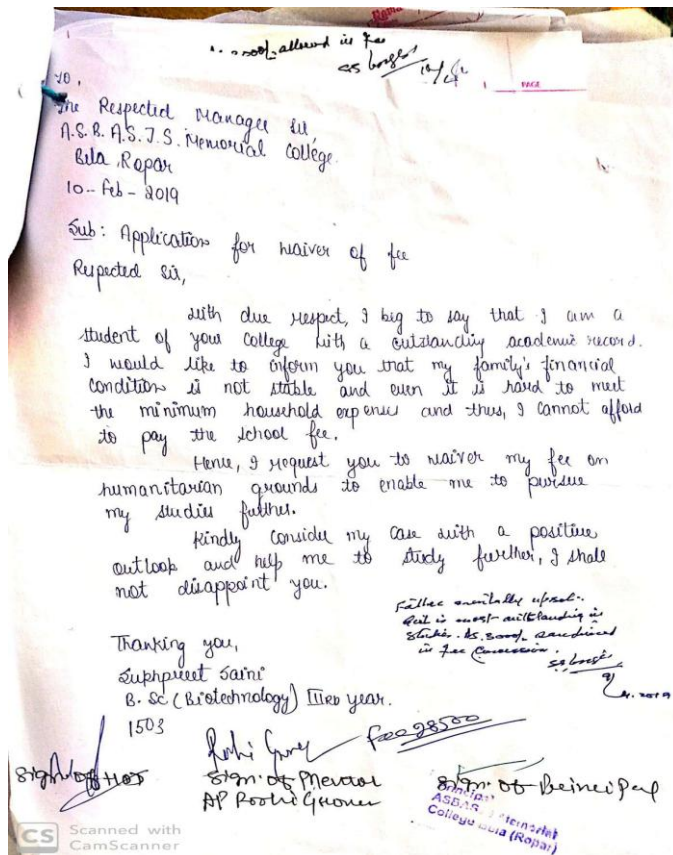 allowed in fee
PAGE
To,
The Respected Manager Sir,
A.S.B.A.S.J.S. Memorial College.
Bela, Ropar
10-Feb-2019
Sub: Application for waiver of fee
Respected Sir,
With due respect, I beg to say that I am a
student of your college with a outstanding academic record.
I would like to inform you that my family's financial
condition is not stable and even it is hard to meet
the minimum household expense and thus, I cannot afford
to pay the school fee.
Hence, I request you to waiver my fee on
humanitarian grounds to enable me to pursue
my studies further.
Kindly consider my case with a positive
outlook and help me to study further, I shall
not disappoint you.
Father mentally upset.
Girl is most outstanding in
studies. Rs. 3000/- sanctioned
in fee concession.
Thanking you,
Sukhpreet Saini
B. Sc (Biotechnology) IIIrd year.
1503
Fee 28500
Sign. of HOD
Sign. of Mentor
Sign. of Principal
AP
Principal
ASBAS Memorial
College Bela (Ropar)
CS Scanned with
CamScanner